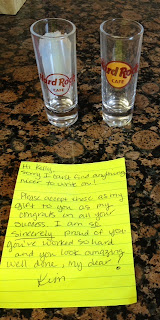 Hard Rock
CAFE
Hard Rock
CAFE
Hi Kelly,
Sorry I can't find anything
nicer to write on!
Please accept these as my
gift to you as my
congrats on all your
success. I am so
sincerely proud of you
you've worked so hard
and you look amazing
well done, my dear!
Kim